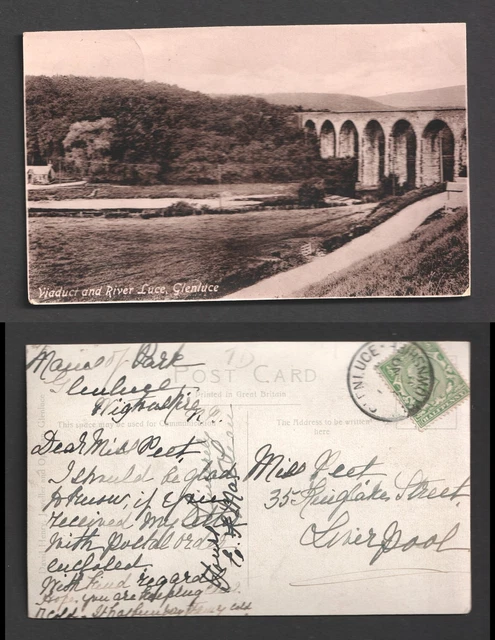 Viaduct and River Luce, Glenluce
Mains of Park
Glenluce
Wigtownshire
POST CARD
Printed in Great Britain
This space may be used for Communication
The Address to be written
here
GLENLUCE
WIGTOWN
HALFPENNY
Dear Miss Peet
I should be glad
to know, if you
received my letter
with postal order
enclosed.
With kind regards
Hope you are keeping
cold
Miss Peet
35 Kinglake Street
Liverpool